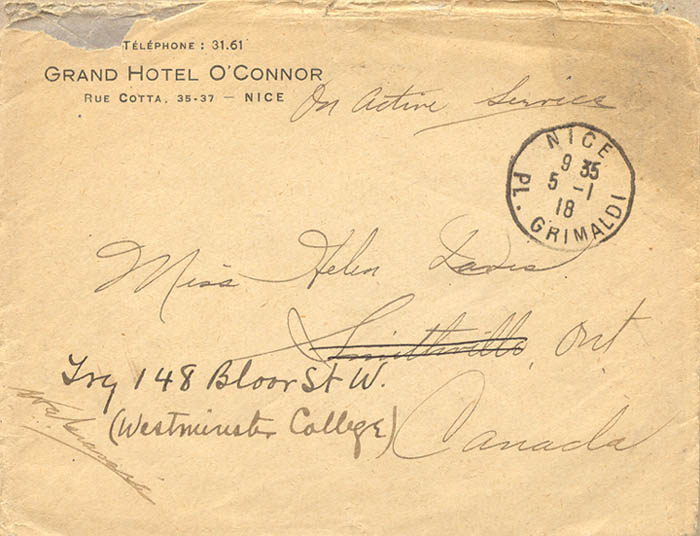 TÉLÉPHONE : 31.61
GRAND HOTEL O'CONNOR
RUE COTTA, 35-37 — NICE
On Active Service
NICE
9 35
5 -1
18
PL. GRIMALDI
Miss Helen
Smithville, Ont
Try 148 Bloor St W.
(Westminster College)
Canada